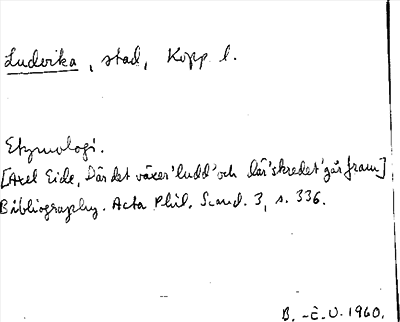 Ludvika, stad, Kopp l.
Etymologi.
[Axel Eide, Där det växer 'ludd' och där 'skredet' går fram]
Bibliography. Acta Phil. Scand. 3, s. 336.
B. -E. U. 1960.